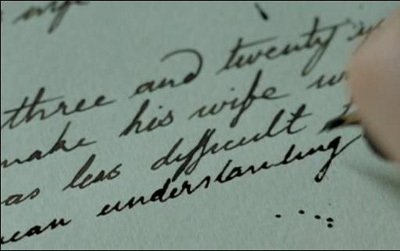 three and twenty
make his wife
as less difficult
ean understanding